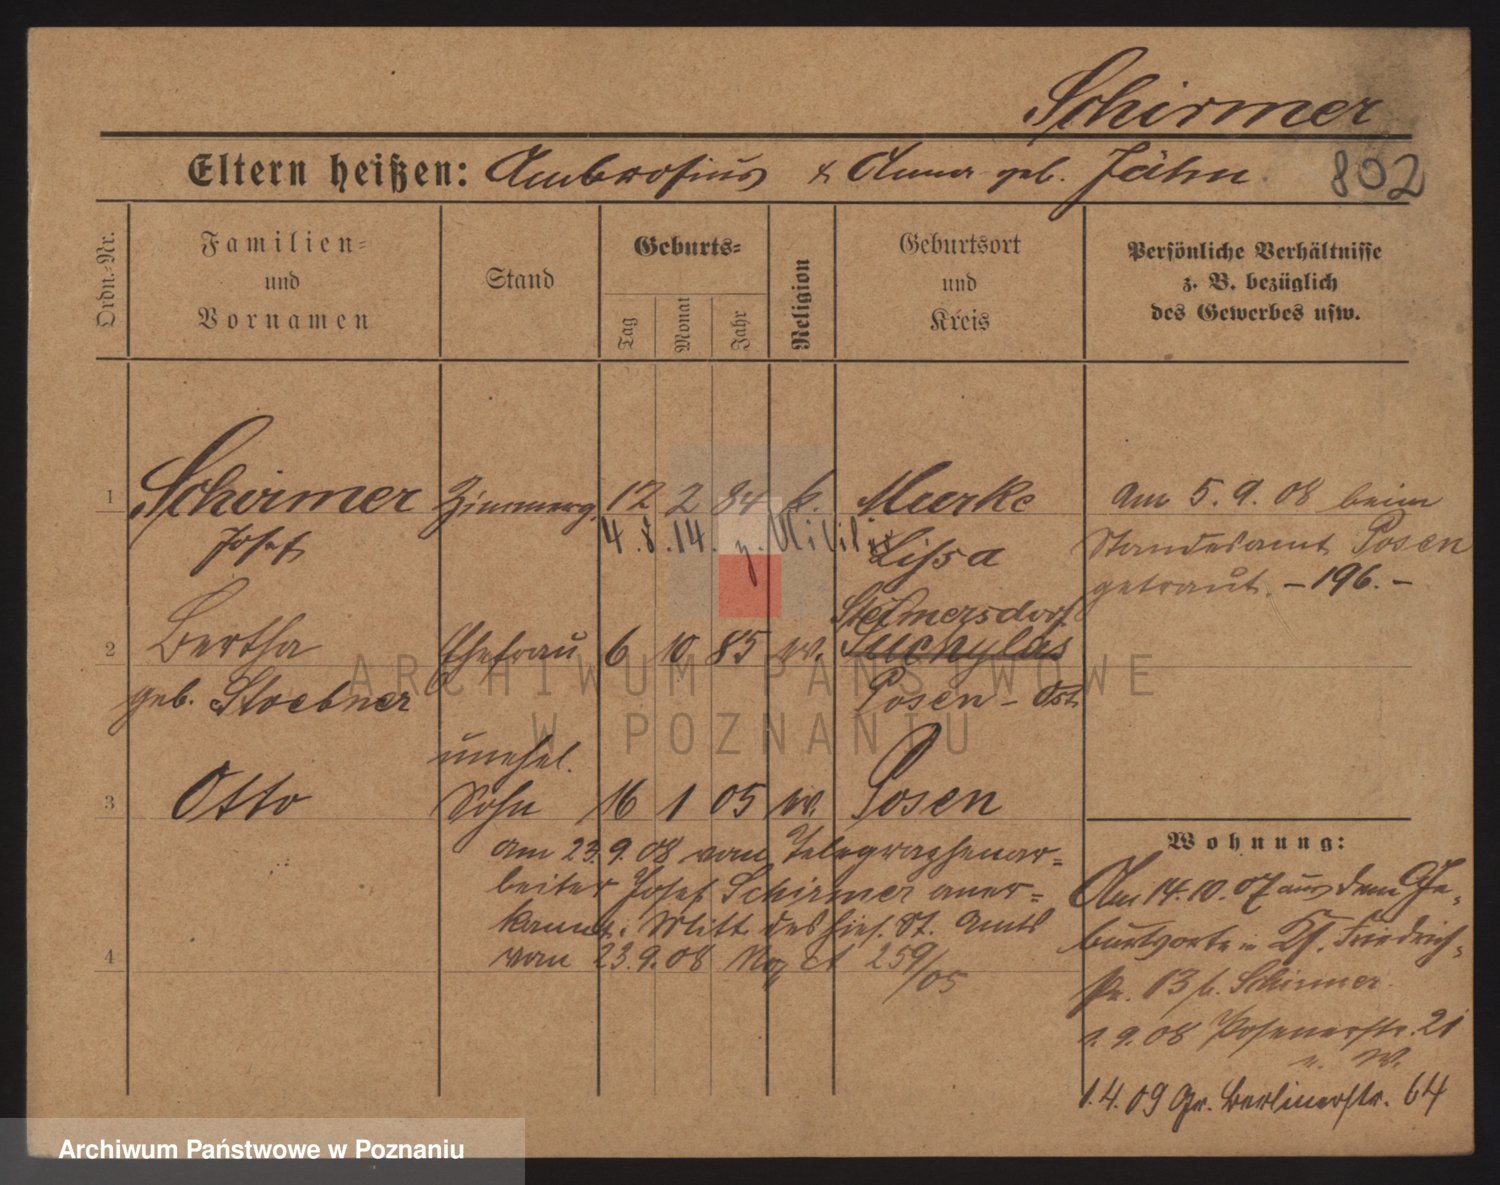 Schirmer
Eltern heißen: Ambrosius & Anna geb. Jähn
802
Ordn.-Nr.
Familien-
und
Vornamen
Stand
Geburts-
Tag
Monat
Jahr
Religion
Geburtsort
und
Kreis
Persönliche Verhältnisse
z. B. bezüglich
des Gewerbes usw.
1 Schirmer Zimmerg. 12 2 84 k. Murke
Josef 4.8.14. z. Militär Lissa
Am 5.9.08 beim
Standesamt Posen
getraut. – 196. –
Steimersdorf
2 Bertha Ehefrau 6 10 85 ev. Suchylas
geb. Stoebner Posen - Ost
unehel.
3 Otto Sohn 16 1 05 ev. Posen
am 23.9.08 vom Telegraphenar=
beiter Josef Schirmer aner=
kannt. Mitt. des hies. St. Amts
4 vom 23.9.08 259/05
Wohnung:
Am 14.10.07 aus dem Ge-
burtsorte n. Friedrich-
13 b. Schirmer
1.9.08 Posenerstr. 21
1.4.09 Gr. Berlinerstr. 64
ARCHIWUM PAŃSTWOWE
W POZNANIU
Archiwum Państwowe w Poznaniu